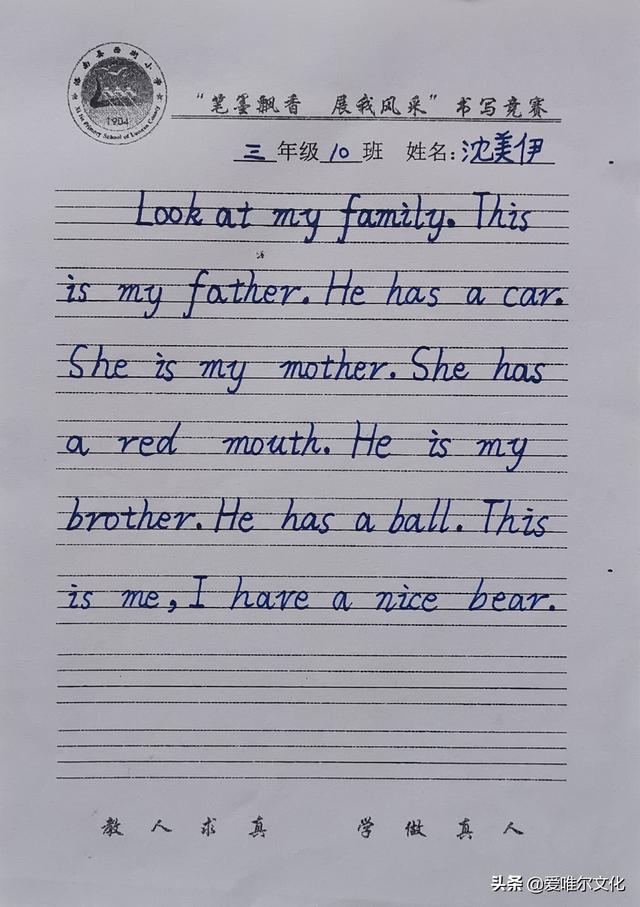 1904
"笔墨飘香 展我风采"书写竞赛
三 年级 10 班 姓名:沈美伊
Look at my family. This
is my father. He has a car.
She is my mother. She has
a red mouth. He is my
brother. He has a ball. This
is me, I have a nice bear.
教人求真 学做真人
头条 @爱唯尔文化